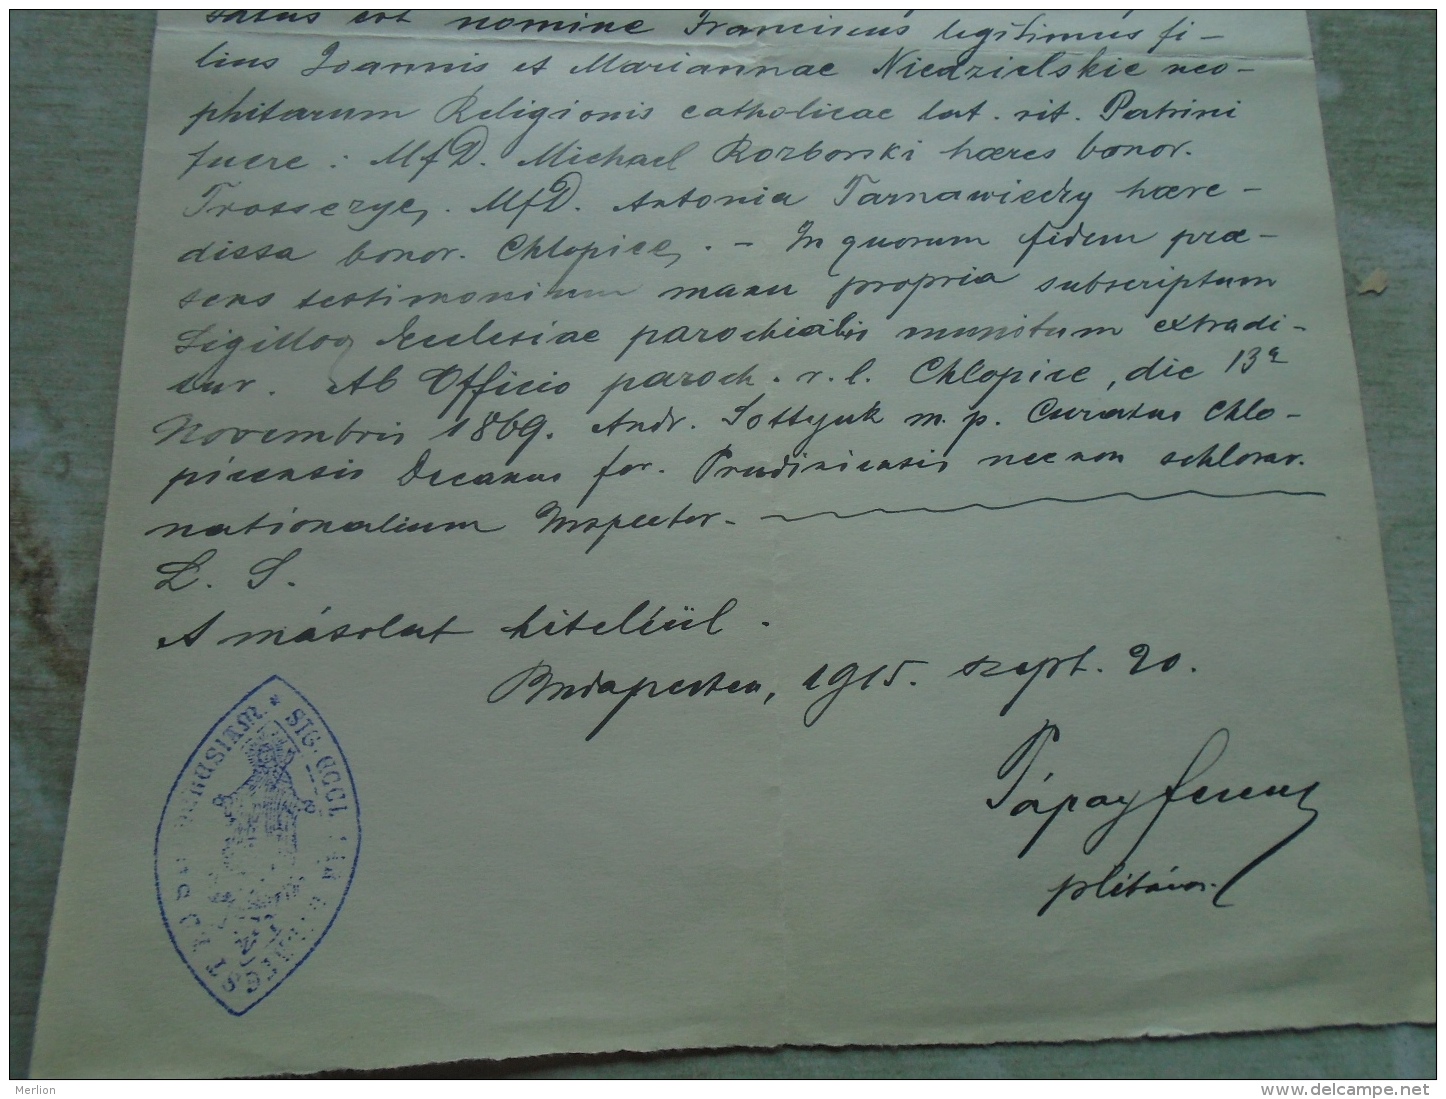 satus est nomine Franciscus legitimus fi-
lius Joannis et Mariannae Niedzielskie neo-
phitarum Religionis catholicae lat. rit. Patrini
fuere: MfD. Michael Rozborski hæres bonor.
MfD. Antonia Tarnawiecky hære-
dissa bonor. Chlopice. - In quorum fidem præ-
sens testimonium manu propria subscriptum
Sigilloq Ecclesiae parochialis munitum extradi-
tur. Ab Officio paroch. r. l. Chlopice, die 13ª
Novembris 1869. Andr. m. p. Curatus Chlo-
picensis Decanus for. necnon scholar.
nationalium Inspector.
L. S.
A másolat hiteléül.
Budapesten, 1915. szept. 20.
Pápay Ferenc
plébános.
SIG. ECCL
PEST
Merlion
www.delcampe.net